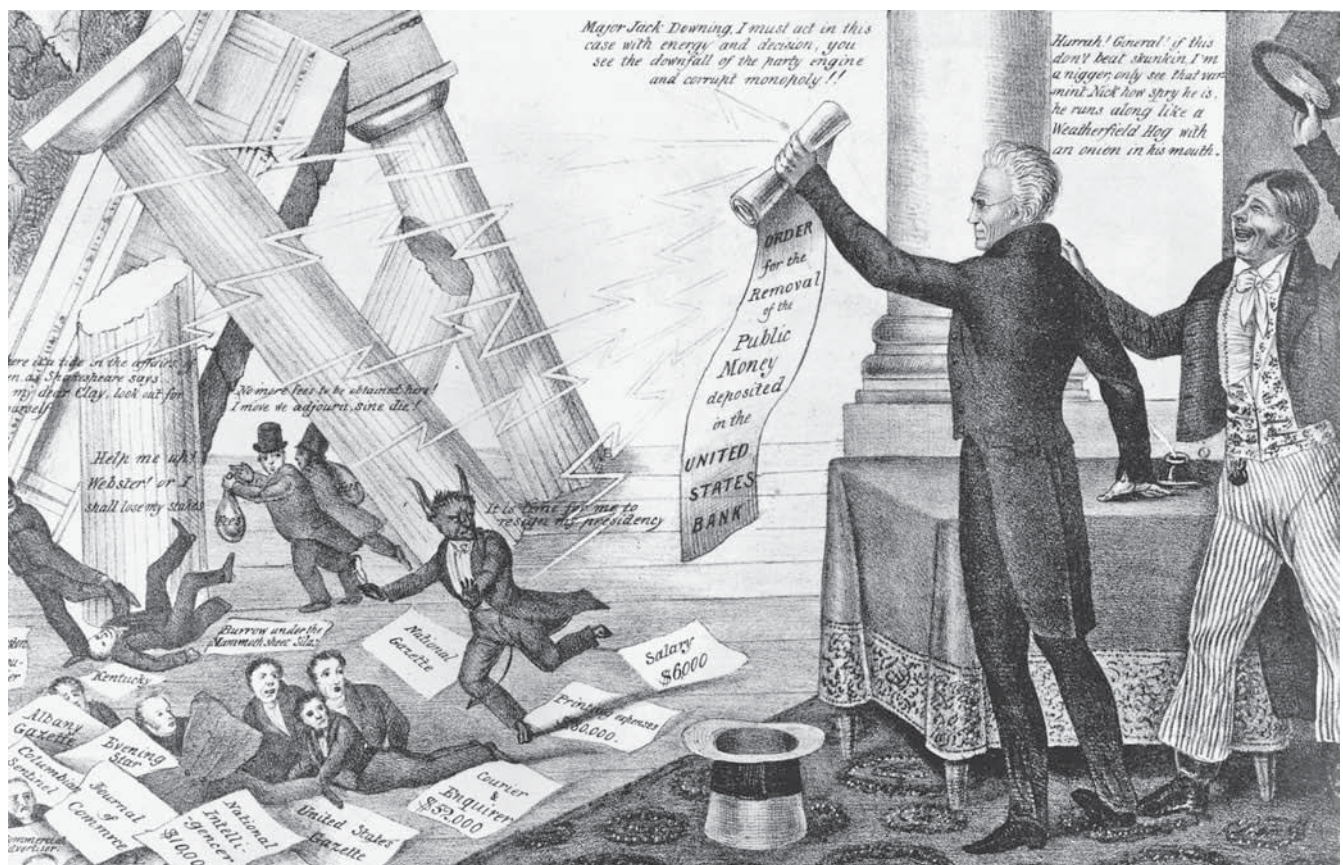 Major Jack Downing, I must act in this
case with energy and decision, you
see the downfall of the party engine
and corrupt monopoly!!
Hurrah! General! if this
don't beat skunkin, I'm
a nigger, only see that var-
mint Nick how spry he is,
he runs along like a
Weatherfield Hog with
an onion in his mouth.
ORDER
for the
Removal
of the
Public
Money
deposited
in the
UNITED
STATES
BANK
here is a tide in the affairs of
en as Shakespeare says
my dear Clay, look out for
ourself
No more fees to be obtained here!
I move we adjourn, sine die!
Help me up!
Webster! or I
shall lose my stakes
Fees
Fees
It is time for me to
resign my presidency
Burrow under the
Mammoth sheet Sila!
Kentucky
National
Gazette
Salary
$6,000
Printing expenses
$80,000.
Albany
Gazette
Evening
Star
Columbian
Sentinel
Journal
of
Commerce
National
Intelli-
gencer
$10,000
United States
Gazette
Courier
&
Enquirer
$52,000
ommercial
dvertiser.